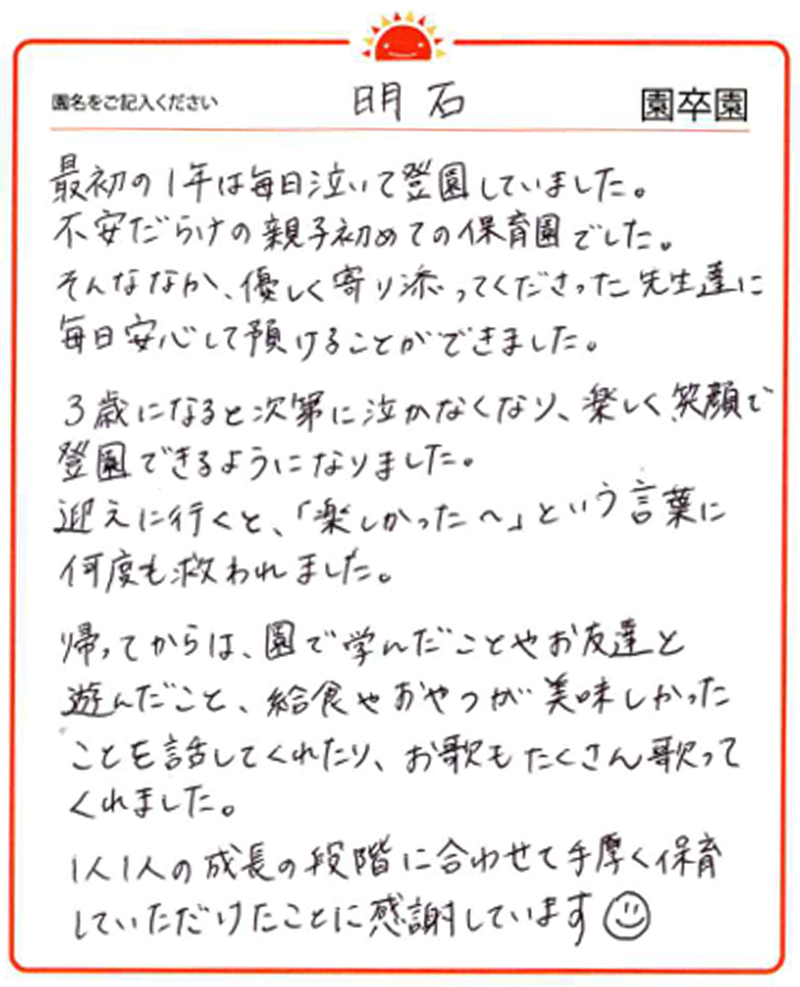 園名をご記入ください 明石 園卒園
最初の1年は毎日泣いて登園していました。
不安だらけの親子初めての保育園でした。
そんななか、優しく寄り添ってくださった先生達に
毎日安心して預けることができました。
3歳になると次第に泣かなくなり、楽しく笑顔で
登園できるようになりました。
迎えに行くと、「楽しかった〜」という言葉に
何度も救われました。
帰ってからは、園で学んだことやお友達と
遊んだこと、給食やおやつが美味しかった
ことを話してくれたり、お歌もたくさん歌って
くれました。
1人1人の成長の段階に合わせて手厚く保育
していただけたことに感謝しています